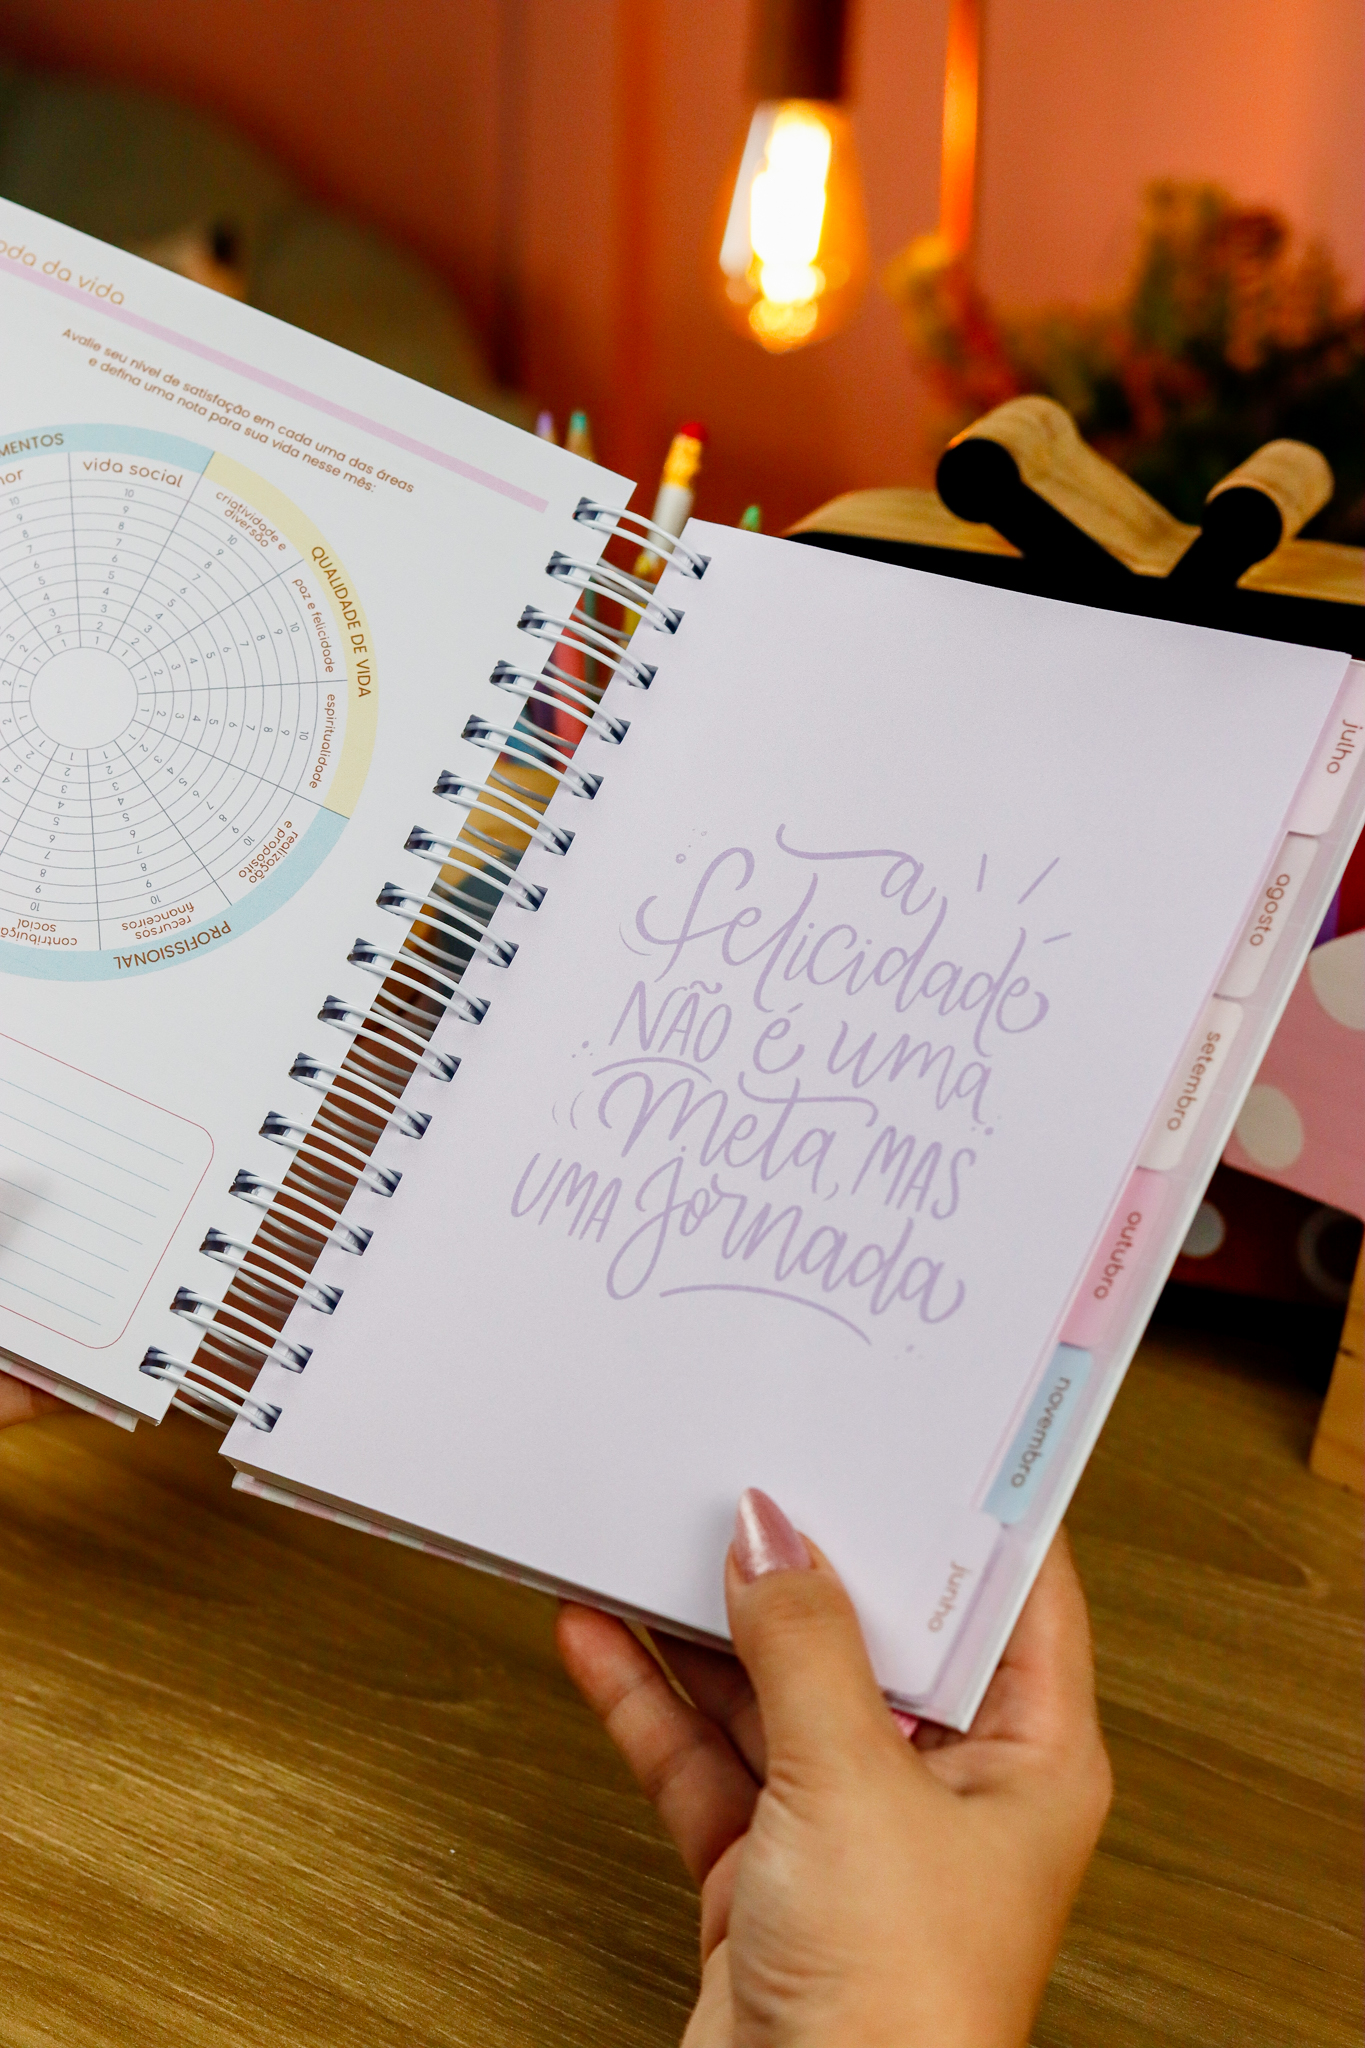 oda da vida
Avalie seu nível de satisfação em cada uma das áreas
e defina uma nota para sua vida nesse mês:
MENTOS
QUALIDADE DE VIDA
PROFISSIONAL
mor
vida social
criatividade e
diversão
paz e felicidade
espiritualidade
realização
e propósito
recursos
financeiros
contribuição
social
a
felicidade
NÃO é uma
meta, MAS
UMA jornada
julho
agosto
setembro
outubro
novembro
junho